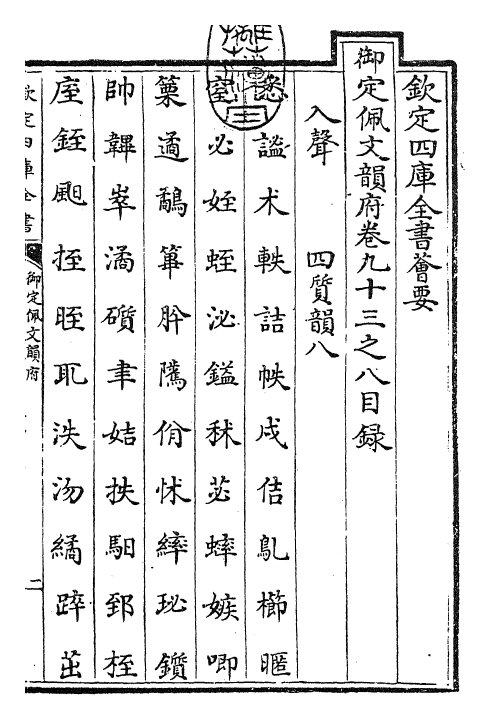 欽定四庫全書薈要
御定佩文韻府卷九十三之八目録
入聲 四質韻八
謐术軼詰帙戌佶鳦櫛暱
窒必姪蛭泌鎰秫苾蟀嫉唧
篥遹鷸篳肸隲佾怵繂珌鑕
帥韠崒潏礩聿姞抶馹郅桎
庢銍颮挃晊耴泆沕繘踤茁
欽定四庫全書
御定佩文韻府
二